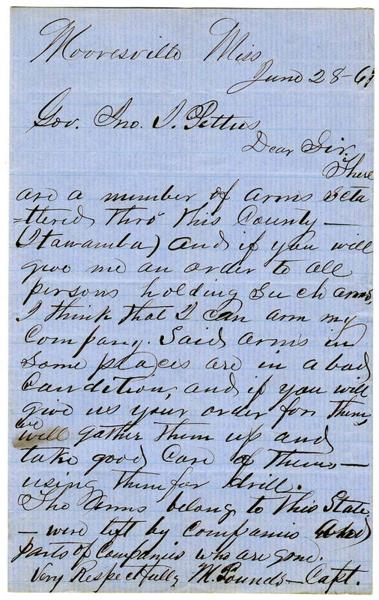 Mooresville Miss
June 28-61
Gov. Jno. J. Pettus
Dear Sir.
There
are a number of arms sca
=ttered thro this County—
(Itawamba) and if you will
give me an order to all
persons holding such arms
I think that I can arm my
Company. Said arms in
some places are in a bad
Condition, and if you will
give us your order for them,
we
will gather them up and
take good care of them—
using them for drill.
The Arms belong to This State,
— were left by companies and
parts of Companies who are gone.
Very Respectfully M. Pounds— Capt.